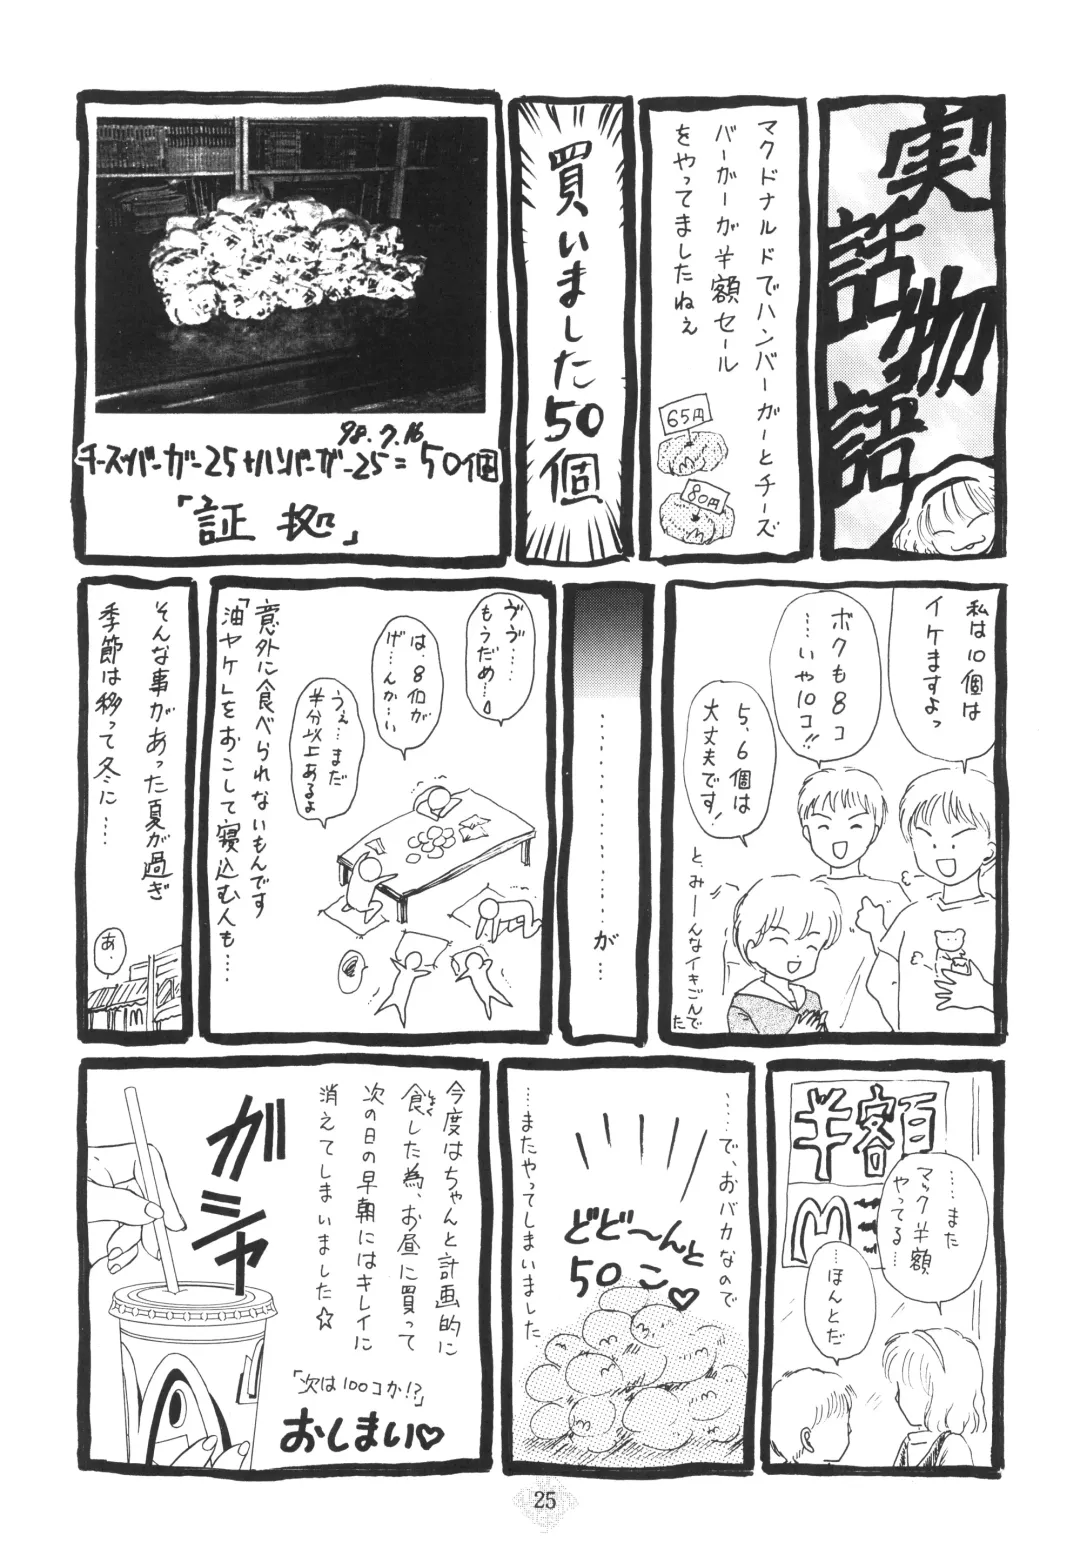 実話物語
マクドナルドでハンバーガーとチーズ
バーガーが半額セール
をやってましたねぇ
65円
80円
買いました50個
98.7.16
チーズバーガー25+ハンバーガー25=50個
「証拠」
私は10個は
イケますよっ
ボクも8コ
……いや10コ!!
5、6個は
大丈夫です!
と、みーんなイキごんで
た
が…
ヴヴ……
もうだめ…
は、8個が
げ…んか…い
うぇ…まだ
半分以上あるよ
意外に食べられないもんです
「油ヤケ」をおこして寝込む人も……
そんな事があった夏が過ぎ
季節は移って冬に……
あ.
半額
M
……また
マック半額
やってる…
…ほんとだ
……で、おバカなので
どど〜んと
50こ♡
……またやってしまいました
今度はちゃんと計画的に
食した為、お昼に買って
しょく
次の日の早朝にはキレイに
消えてしまいました☆
ガシャ
「次は100コか!?」
おしまい♡
25